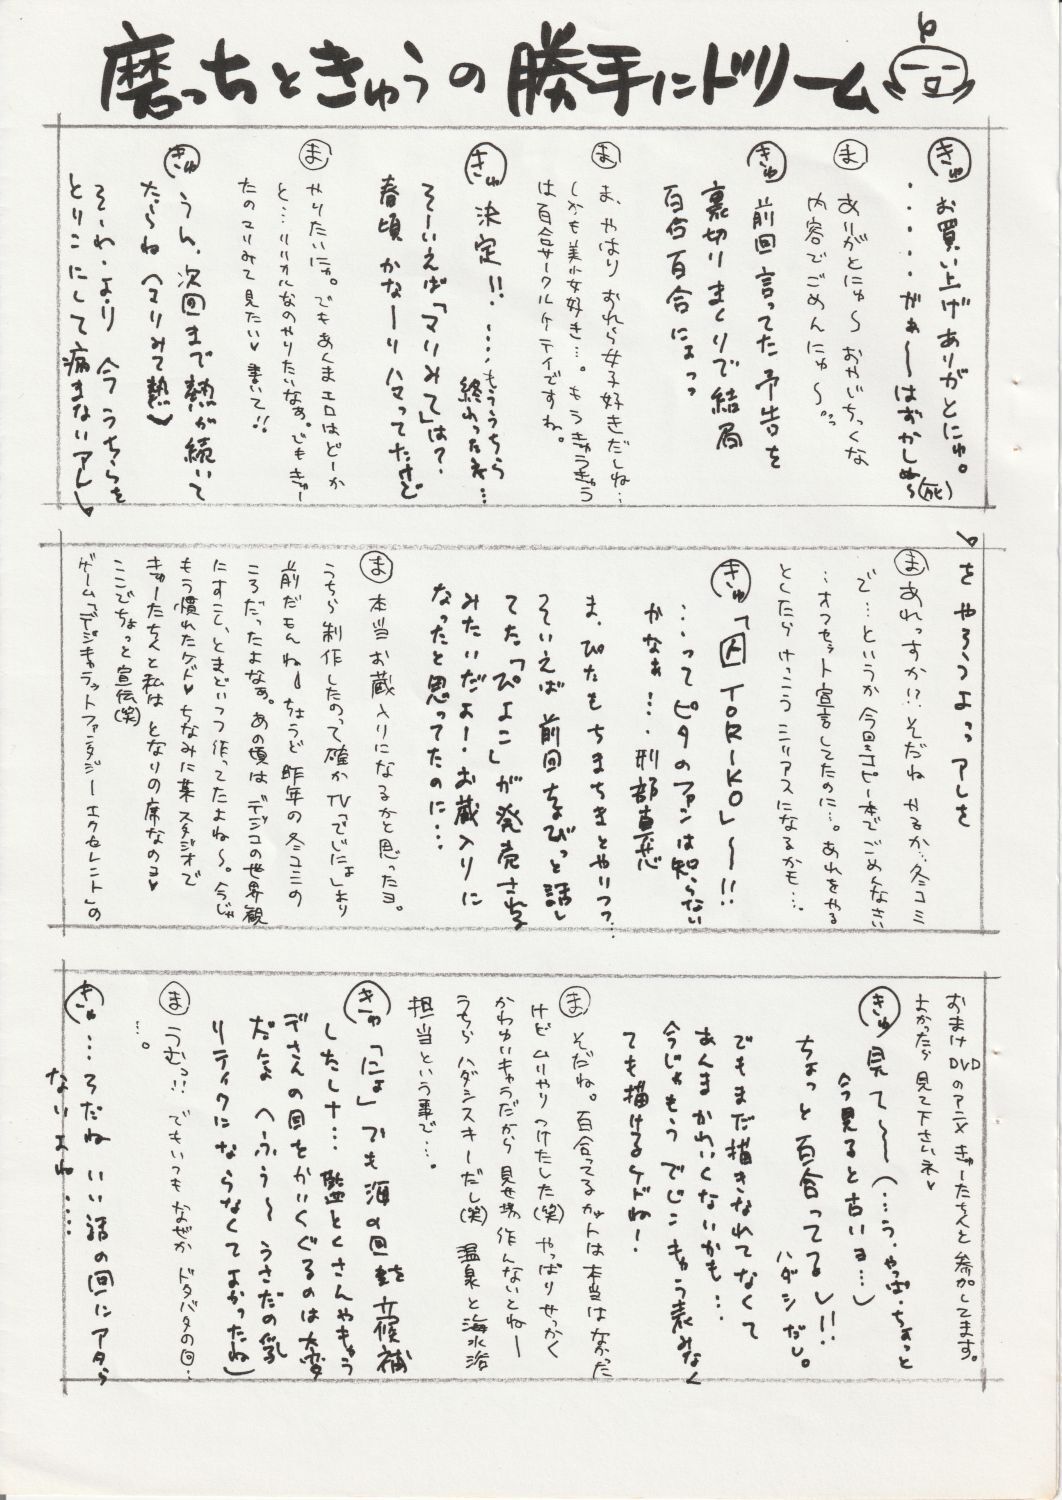 磨っちときゅうの勝手にドリーム
きゅ お買い上げありがとにゅ。
・・・・・がぁ〜〜はずかしぬ〜(死)
ま ありがとにゅ〜 おやいちっくな
内容でごめんにゅ〜。
きゅ 前回言ってた予告を
裏切りまくりで結局
百合百合にょっっ
ま ま、やはりおれら女子好きだしね…
しかも美少女好き…。もうきゅうきゅう
は百合サークルケテイですね。
きゅ 決定!!…もううちら
終わったネ…
そーいえば「マリみて」は?
春頃かなーりハマってたけど
ま やりたいにゃ。でもあくまエロはどーか
と…リリオルなのやりたいなぁ。でもきゅー
たのマリみて見たい♥書いて!!
きゅ うん、次回まで熱が続いて
たらね(マリみて熱)
それ・より 今うちらを
とりこにして病まないアレ
をやろうよっっ アレを
ま あれっすか!?そだね やるか…冬コミ
で…というか今回コピー本でごめんなさい
…オフセット宣言してたのに…。あれをやる
としたらけっこうシリアスになるかも…。
きゅ 「囚 TORIKO」〜〜!!
…ってピタのファンは知らない
かなぁ…刑部真芯
ま、ぴたもちまちまとやりつつ…
そいえば前回ちょびっと話し
てた「ぴよこ」が発売される
みたいだよー・お蔵入りに
なったと思ってたのに…
ま 本当お蔵入りになるかと思ったヨ。
うちら制作したのって確かTV「でじにょ」より
前だもんね ちょうど昨年の冬コミの
ころだったよなぁ。あの頃はデジコの世界観
にすごく、とまどいつつ作ってたよね〜。今じゃ
もう慣れたケド♥ちなみに葉スタジオで
きゅーたちんと私はとなりの席なのョ♥
ここでちょっと宣伝(笑)
ゲーム「デジキャラットファンタジーエクセレント」の
おまけDVDのアニメきゅーたちんと参加してます。
よかったら見て下さいネ♥
きゅ 見て〜〜(…う、やっぱ、ちょっと
今見ると古いョ…)
ちょっと百合ってるし!!
ハダシだし。
でもまだ描きなれてなくて
あんまかわいくないかも…
今じゃもうでじこキャラ表みなく
ても描けるケドねー
ま そだね。百合ってるカットは本当はなかった
けどムリやりつけたした(笑)やっぱりせっかく
かわゆいキャラだから見せ場作んないとねー
うちらハダシスキーだし(笑) 温泉と海水浴
担当という事で…。
きゅ 「にょ」でも海の回を立候補
したし†…監とくさんやキャラ
デさんの目をかいくぐるのは大変
だにょ(ふぅ〜うさだの乳
リーティクにならなくてよかったね)
ま うむっ!!でもいつもなぜかドタバタの回…
…。
きゅ …ろだねいい話の回にアタら
ないよね……